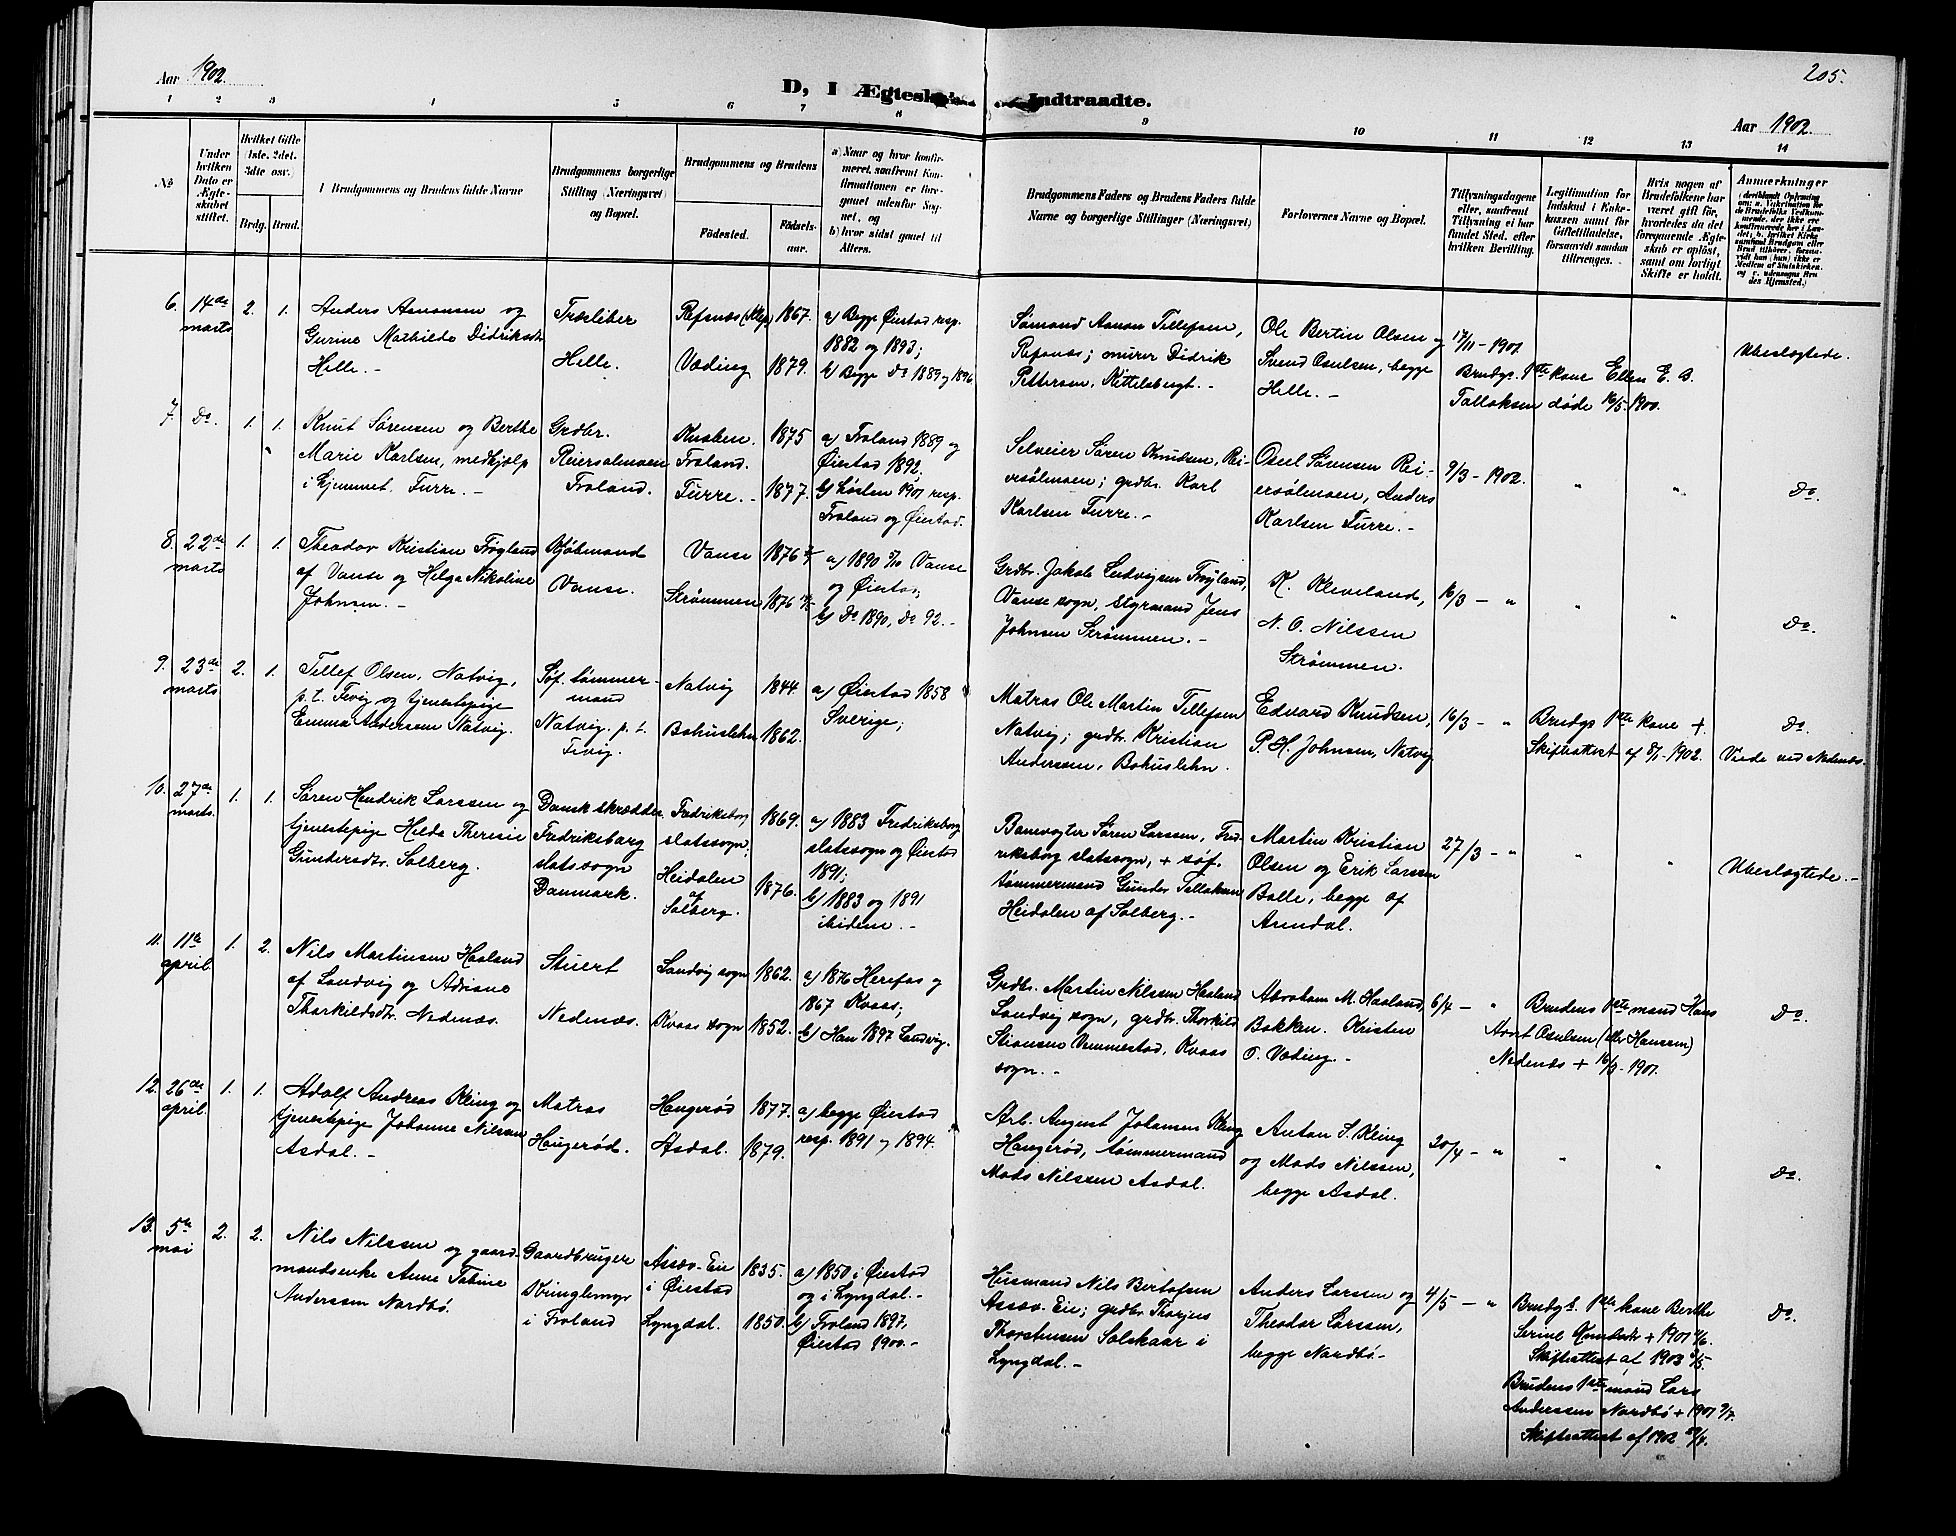 Aar 1902.
D, I Ægteskab Indtraadte.
205.
Aar 1902.
1 2 3 4 5 6 7 8 9 10 11 12 13 14
No
Under hvilken Dato er Ægteskabet stiftet.
Hvilket Gifte (1ste, 2det, 3die osv.)
Brdg. Brud.
Brudgommens og Brudens fulde Navne
Brudgommens borgerlige Stilling (Næringsvei) og Bopæl.
Brudgommens og Brudens
Fødested.
Fødselsaar.
a) Naar og hvor konfirmeret, saafremt Konfirmationen er foregaaet udenfor Sognet, og
b) hvor sidst gaaet til Alters.
Brudgommens Faders og Brudens Faders fulde Navne og borgerlige Stillinger (Næringsvei)
Forlovernes Navne og Bopæl.
Tillysningsdagene eller, saafremt Tillysning ei har fundet Sted, efter hvilken Bevilling.
Legitimation for Indskud i Enkekassen samt for Giftetilladelse, forsaavidt saadan tiltrænges.
Hvis nogen af Brudefolkene har været gift før, hvorledes da det foregaaende Ægteskab er opløst, samt om lovligt Skifte er holdt.
Anmærkninger
6. 14de marts 2. 1.
Anders Aanonsen og
Gurine Mathilde Didriksdtr.
Helle. -
Træsliber
Helle.
Refsnæs 1867.
Væding 1879.
a) Begge Øiestad resp.
1882 og 1893;
b) Begge Do 1889 og 1896
Sømand Aanon Tellefsen,
Refsnæs; murer Didrik
Pettersen, Kittelsbugt. -
Ole Bertin Olsen og
Svend Oselsen, begge
Helle. -
17/11 - 1901.
Brudgs. 1ste kone Ellen E. B.
Tallaksen døde 16/5 1900.
Ubeslægtede.
7. Do. 1. 1.
Knut Sørensen og Berthe
Marie Karlsen, medhjælp
i hjemmet. Furre. -
Grdbr.
Reiersølmoen
Froland.
Knaben. 1875
Froland.
Furre. - 1877.
a) Froland 1889 og
Øiestad 1892.
b) Høsten 1901 resp.
Froland og Øiestad.
Selveier Søren Knudsen, Rei-
ersølmoen; grdbr. Karl
Karlsen Furre. -
Osuel Sørensen Rei-
ersølmoen, Anders
Karlsen Furre. -
9/3 - 1902. " "
Do.
8. 22de marts 1. 1.
Theodor Kristian Frøyland
af Vanse og Helga Nikoline
Johnsen. -
Kjøbmand
Vanse.
Vanse 1876
Strømmen 1876
a) 1890 Vanse
og Øiestad;
b) Do 1890, Do 92. -
Grdbr. Jakob Ludvigsen Frøyland,
Vanse sogn, styrmand Jens
Johnsen Strømmen. -
K. Kleveland,
N. O. Nilssen
Strømmen.
16/3 - " " "
Do.
9. 23de marts 2. 1.
Tellef Olsen, Natvig,
p. t. Fevig og tjenestepige
Emma Andersen Natvig.
Søf. tømmer-
mand
Natvig. p. t.
Fevig.
Natvig 1844.
Bohuslehn 1862.
a) Øiestad 1858
Sverige;
Matros Ole Martin Tellefsen
Natvig; grdbr. Kristian
Anderssen, Bohuslehn.
Edvard Knudsen,
P. H. Johnsen, Natvig
16/3 - "
Brudgs 1ste kone +
Skifteattest af 8/1 - 1902.
Do.
Viede ved Nedenæs.
10. 27de marts. 1. 1.
Søren Hendrik Larssen og
tjenestepige Hilda Theresie
Gundersdtr. Solberg.
Dansk skrædder
Fredriksborg
slotssogn
Danmark.
Fredriksborg
slotssogn, 1869.
Heidalen
af
Solberg. 1876.
a) 1883 Fredriksborg
slotssogn og Øiestad
1891;
b) 1883 og 1891
ibidem. -
Banevogter Søren Larssen, Fred-
riksborg slotssogn, + søf.
tømmermand Gunder Tellaksen
Heidalen af Solberg. -
Martin Kristian
Olsen og Erik Larssen
Balle, begge af
Arendal.
27/3 - " " "
Ubeslægtede. -
11. 11te april. 1. 2.
Nils Martinsen Haaland
af Landvig og Adriane
Thorkildsdtr. Nedenæs.
Stuert
Nedenæs.
Landvig sogn 1862.
Kvaas sogn 1852.
a) 1876 Herefos og
1867 Kvaas;
b) Han 1897 Landvig.
Grdbr. Martin Nilssen Haaland
Landvig sogn, grdbr. Thorkild
Stiansen Vemmestad, Kvaas
sogn. -
Abraham M. Haaland,
Bakken. Kristen
O. Væding. -
6/4 - "
Brudens 1ste mand Hans
Aovt Oselsen (eller Hanssen)
Nedenæs + 16/3 - 1901.
Do.
12. 26de april. 1. 1.
Adolf Andreas Kling og
tjenestepige Johanne Nilssen
Asdal. -
Matros
Haugerød.
Haugerød 1877.
Asdal. 1879.
a) begge Øiestad
resp. 1891 og 1894.
Arb. August Johansen Kling
Haugerød, tømmermand
Mads Nilssen Asdal.
Anton S. Kling
og Mads Nilssen,
begge Asdal.
20/4 - " " "
Do.
13. 5te mai 2. 2.
Nils Nilssen og gaard-
mandsenke Anne Tobine
Anderssen Nordbø.
Gaardbruger
Kringlemyr
i Froland
Assev. Eie
i Øiestad 1835.
Lyngdal. 1850.
a) 1850 i Øiestad
og i Lyngdal. -
b) Froland 1897,
Øiestad 1900. -
Husmand Nils Bertofsen
Assev. Eie; grdbr. Thorjus
Thorstensen Solskaar i
Lyngdal. -
Anders Larssen og
Theodor Larssen,
begge Nordbø -
4/5 - "
Brudgs. 1ste kone Berthe
Serine Knudsdtr + 1901 4/6.
Skifteattest af 1903 3/5.
Brudens 1ste mand Lars
Anderssen Nordbø + 1901 9/7.
Skifteattest af 1902 29/4.
Do.